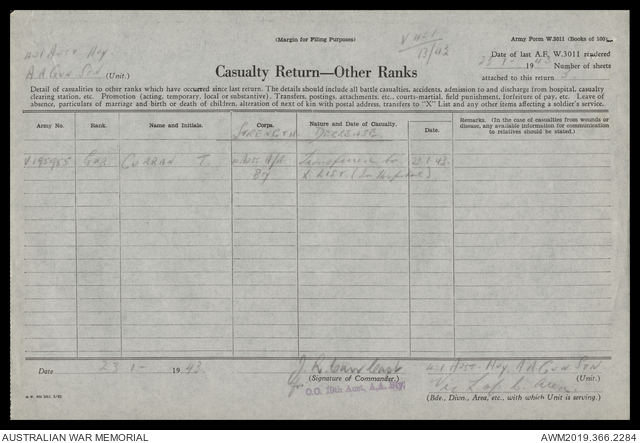 (Margin for Filing Purposes)
Army Form W.3011 (Books of 100)
V 421
13/42
421 Aust. Hvy
A A Gun Stn (Unit.)
Date of last A.F. W.3011 rendered
23-1- 1943 Number of sheets
attached to this return
Casualty Return—Other Ranks
Detail of casualties to other ranks which have occurred since last return. The details should include all battle casualties, accidents, admission to and discharge from hospital, casualty
clearing station, etc. Promotion (acting, temporary, local or substantive). Transfers, postings, attachments, etc., courts-martial, field punishment, forfeiture of pay, etc. Leave of
absence, particulars of marriage and birth or death of children, alteration of next of kin with postal address, transfers to "X" List and any other items affecting a soldier's service.
Army No. Rank. Name and Initials. Corps. Nature and Date of Casualty. Date. Remarks. (In the case of casualties from wounds or
disease, any available information for communication
to relatives should be stated.)
STRENGTH DECREASE
V195985 Gnr CURRAN T. Transferred to 23.1.43.
Bty X LIST (In Hospital)
Date 23 1- 1943
(Signature of Commander.)
O.C. 10th Aust. A.A. Bty
421 Aust. Hvy. A A Gun Stn
(Unit.)
Vic L of C Area
(Bde., Divn., Area, etc., with which Unit is serving.)
AUSTRALIAN WAR MEMORIAL
AWM2019.366.2284